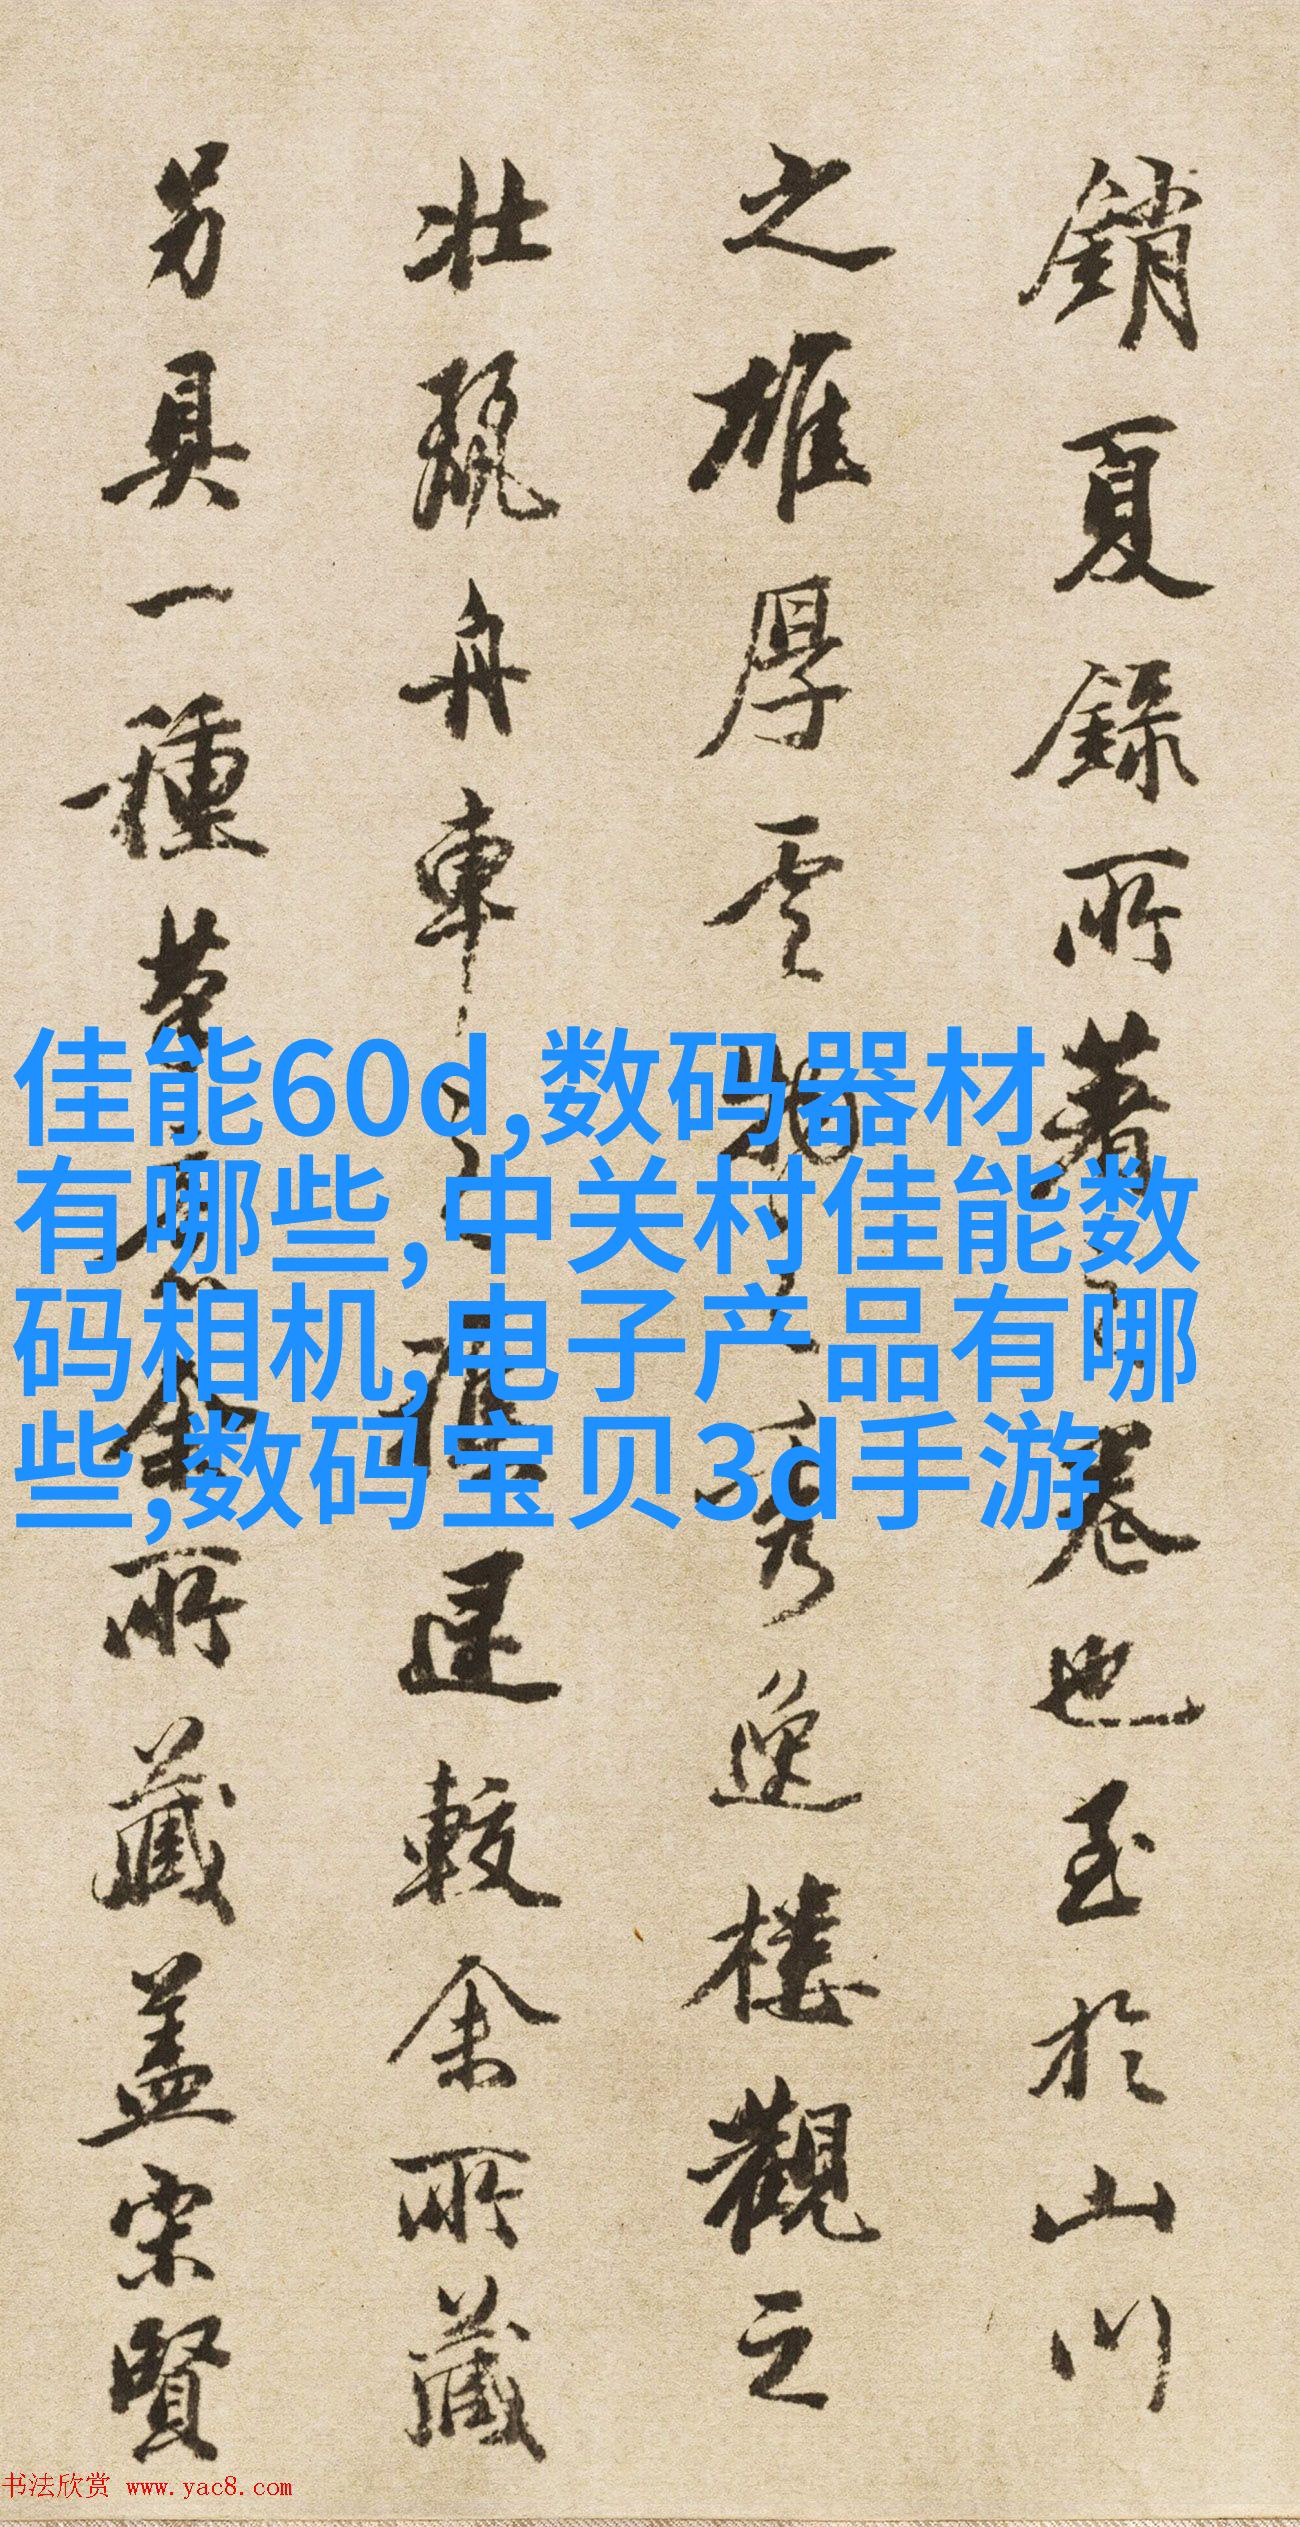 銷夏録所著
卷也至於山川
之雄厚雲物之秀逸樓觀之
壮麗舟車之
較余所藏
另具一種
所藏盖宋賢
佳能60d,数码器材
有哪些,中关村佳能数
码相机,电子产品有哪
些,数码宝贝3d手游
书法欣赏 www.yac8.com